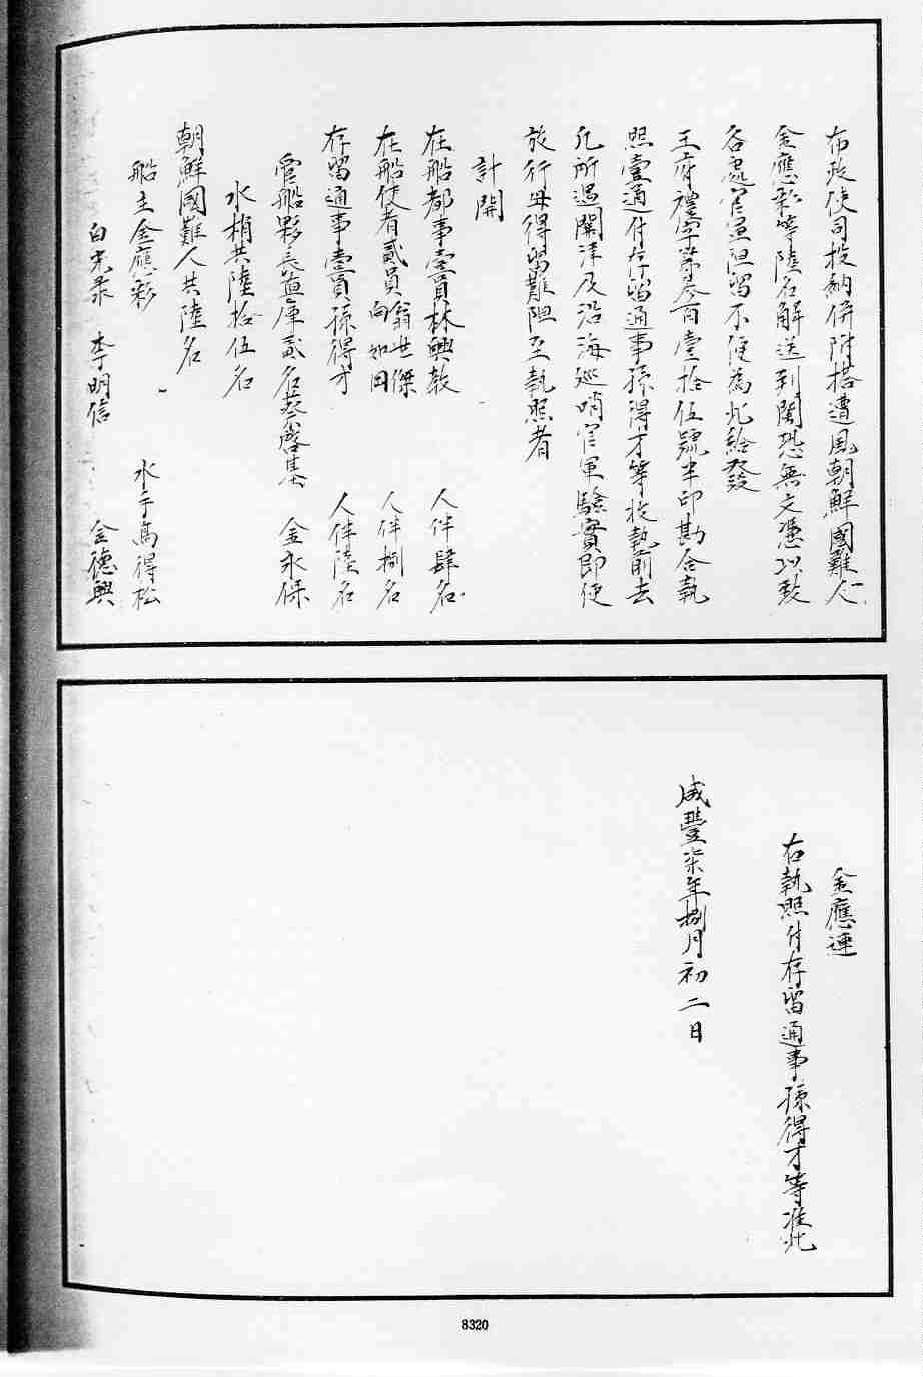 布政使司投納併附搭遭風朝鮮國難人
金應彩等陸名解送到閩恐無文憑以致
各處官軍阻留不便為此給發
王府禮字第叁百壹拾伍號半印勘合執
照壹通付存留通事孫得才等收執前去
凡所過關津及沿海巡哨官軍驗實即便
放行毋得留難阻至執照者
計開
在船都事壹員林興教 人伴肆名
在船使者貳員翁世傑 向如日 人伴捌名
存留通事壹員孫得才 人伴陸名
管船夥長直庫貳名蔡啓基 金永保
水梢共陸拾伍名
朝鮮國難人共陸名
船主金應彩 水手高得松
白 李明信 金德興
金應連
右執照付存留通事孫得才等准此
咸豐柒年捌月初二日
8320